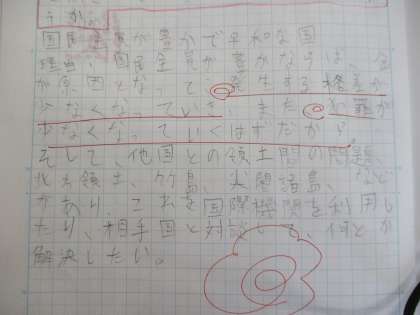 うか。
国民全員が豊かで平和な国
理由、国民全員が豊かならば、金
が原因となって発生する格差が
少なくなっていき、また、犯罪が
少なくなっていくはずだから。
そして、他国との領土間の問題、
北方領土、竹島、尖閣諸島、など
があり、これを国際機関を利用し
たり、相手国と対談して、何とか
解決したい。